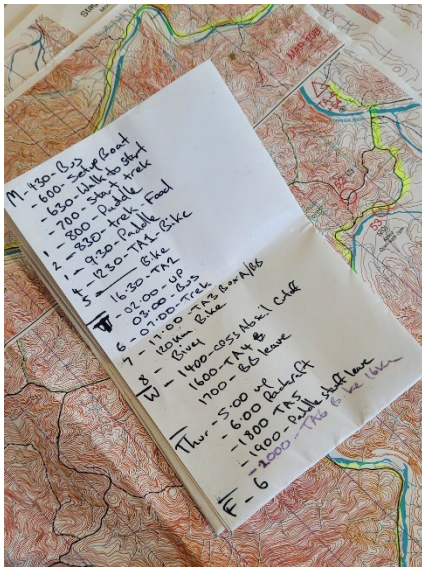 M - 430 - Bus
- 600 - Setup Boat
- 630 - Walk to Start
- 700 - Start trek
1 - 800 - Paddle
2 - 830 - Trek - Food
- 930 - Paddle
4 - 1230 - TA1 Bike
5 Bike
- 16:30 - TA2
T - 02:00 - UP
03:00 - Bus
6 - 07:00 - Trek
7 - 17:00 - TA3 Box A/BB
- 120km Bike
8 - Bivey
W - 1400 - Abseil Cutoff
1600 - TA4 B
1700 - BB leave
Thur - 5:00 up
- 6:00 Packraft
- 1800 TA5
- 1900 - Paddle leave
- 2000 - TA6 Bike 16km
F - 6